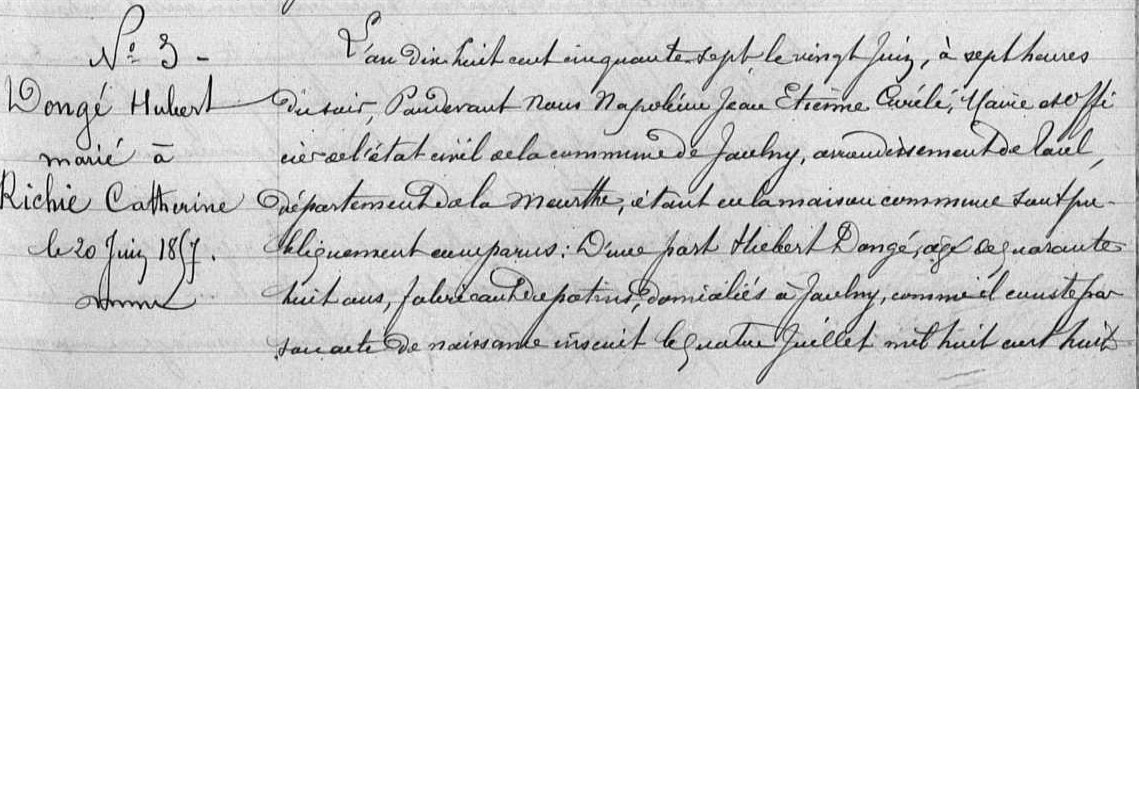 N° 3 -
Dongé Hubert
marié à
Richie Catherine
le 20 Juin 1857.
L'an dix huit cent cinquante sept, le vingt Juin, à sept heures
du soir, Pardevant Nous Napoléon Jean Etienne Maire et offi
cier de l'état civil de la commune de Jaulny, arrondissement de Toul,
département de la Meurthe, étant en la maison commune sont pu-
bliquement comparus: D'une part Hubert Dongé, âgé de quarante
huit ans, fabricant de domiciliés à Jaulny, comme il conste par
son acte de naissance inscrit le quatre Juillet mil huit cent huit